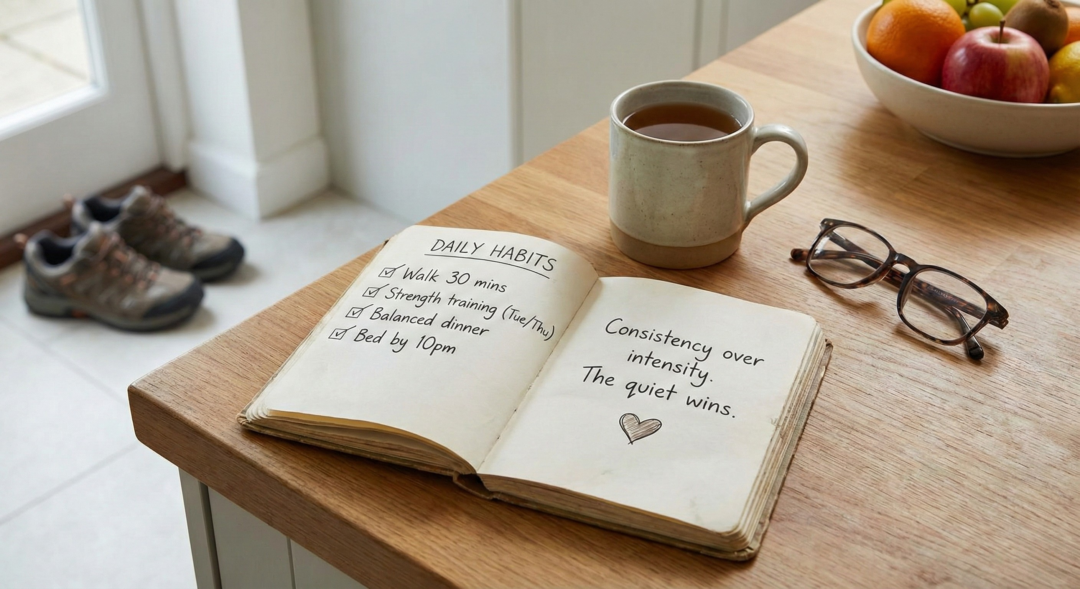 DAILY HABITS
☑ Walk 30 mins
☑ Strength training (Tue/Thu)
☑ Balanced dinner
☑ Bed by 10pm
Consistency over
intensity.
The quiet wins.